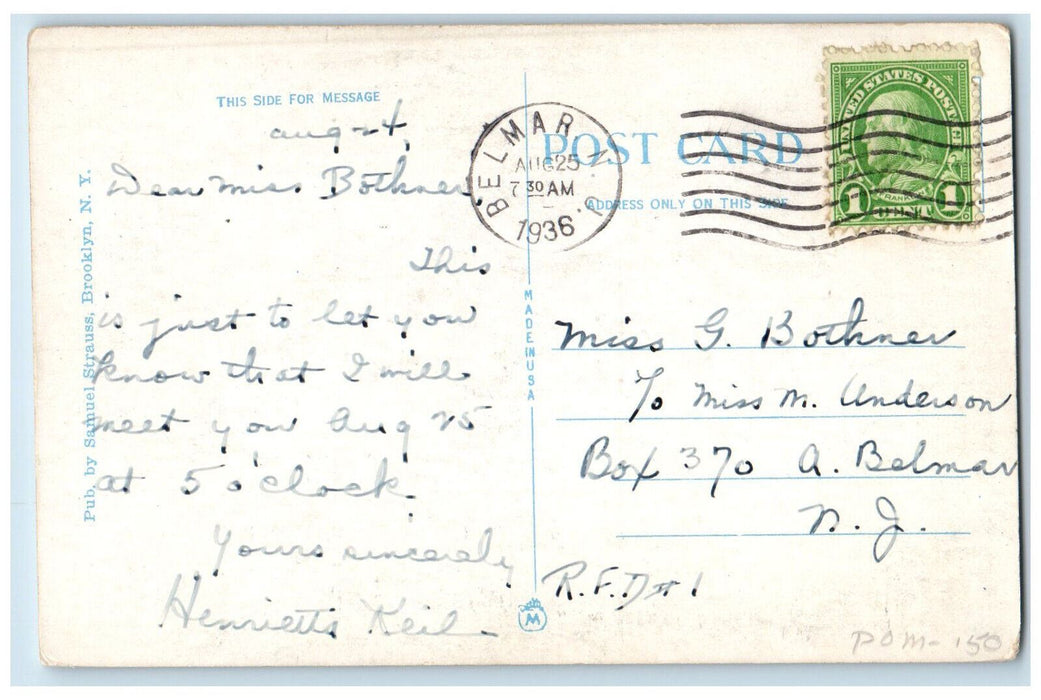 THIS SIDE FOR MESSAGE
Aug 24
Dear Miss Bothner,
This
is just to let you
know that I will
meet you Aug 25
at 5 o'clock.
Yours sincerely
Henrietta Keil
Pub. by Samuel Strauss, Brooklyn, N. Y.
MADE IN USA
M
POST CARD
ADDRESS ONLY ON THIS SIDE
BELMAR N.J.
AUG 25
7 30 AM
1936
UNITED STATES POSTAGE
FRANKLIN
1 CENT 1
Miss G. Bothner
c/o Miss M. Anderson
Box 370 A. Belmar
N. J.
R.F.D #1
POM-150